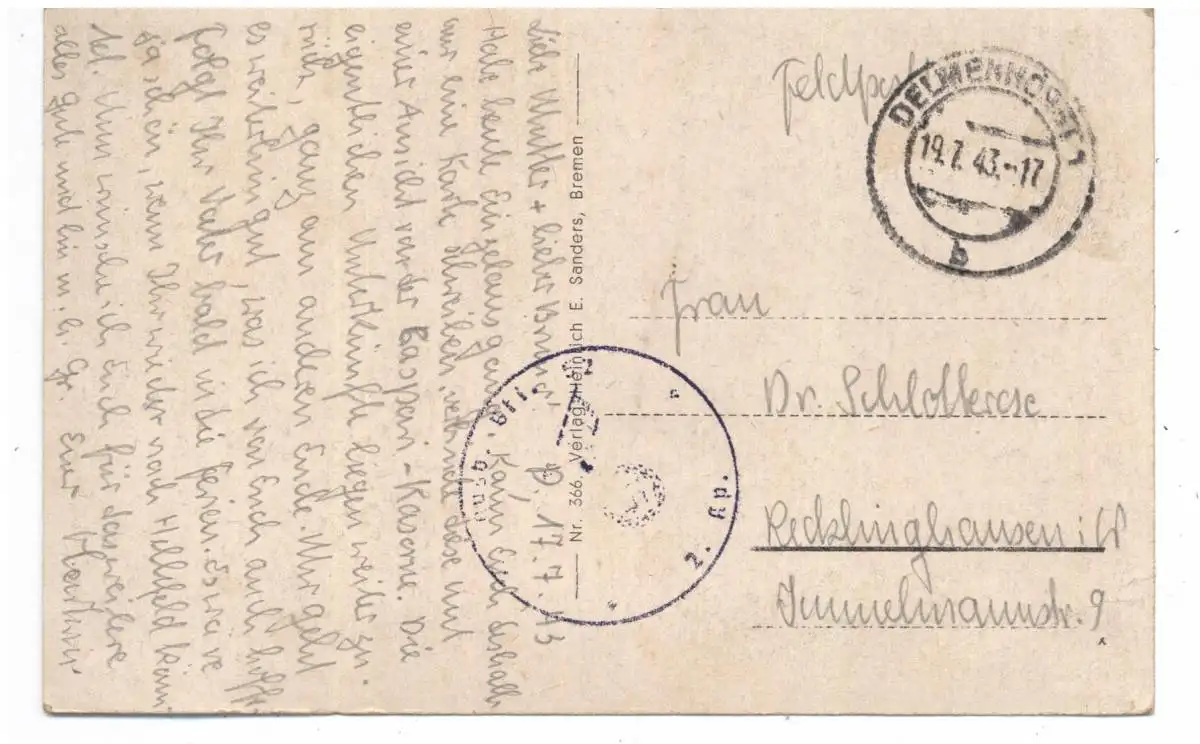 Feldpost
DELMENHORST 1
19.7.43.-17
b
Frau
Dr. Schlotterose
Recklinghausen i/W
Immelmannstr. 9
Nr. 366, Verlag Heinrich E. Sanders, Bremen
Ausb. Btl.
2. Kp.
D. 17.7.43
Liebe Mutter + lieber
Habe heute Kann Euch deshalb
nur eine Karte schreiben, diese mit
einer Ansicht von der Caspari-Kaserne. Die
eigentlichen Unterkünfte liegen weiter zu-
rück, ganz am anderen Ende. Mir geht
es weiterhin gut, was ich von Euch auch hoffe.
Ihr Vater bald in die Ferien. Es wäre
ja schön, wenn Ihr wieder nach Hellefeld käm-
t. Nun wünsche ich Euch für das weitere
alles gute und bin m. h. Gr. Euer